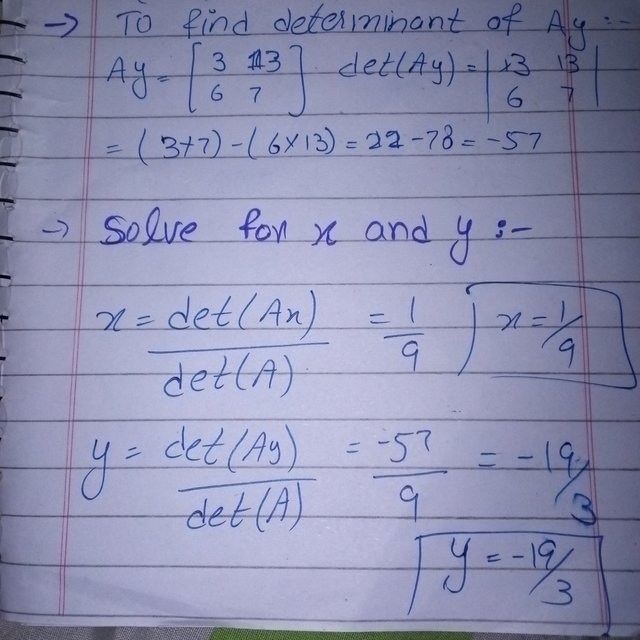 → To find determinant of Ay :-
Ay = [3 13 6 7] det(Ay) = |3 13 6 7|
= (3+7) - (6×13) = 22 - 78 = -57
→ Solve for x and y :-
x = det(Ax)/det(A) = 1/9 x = 1/9
y = det(Ay)/det(A) = -57/9 = -19/3
y = -19/3